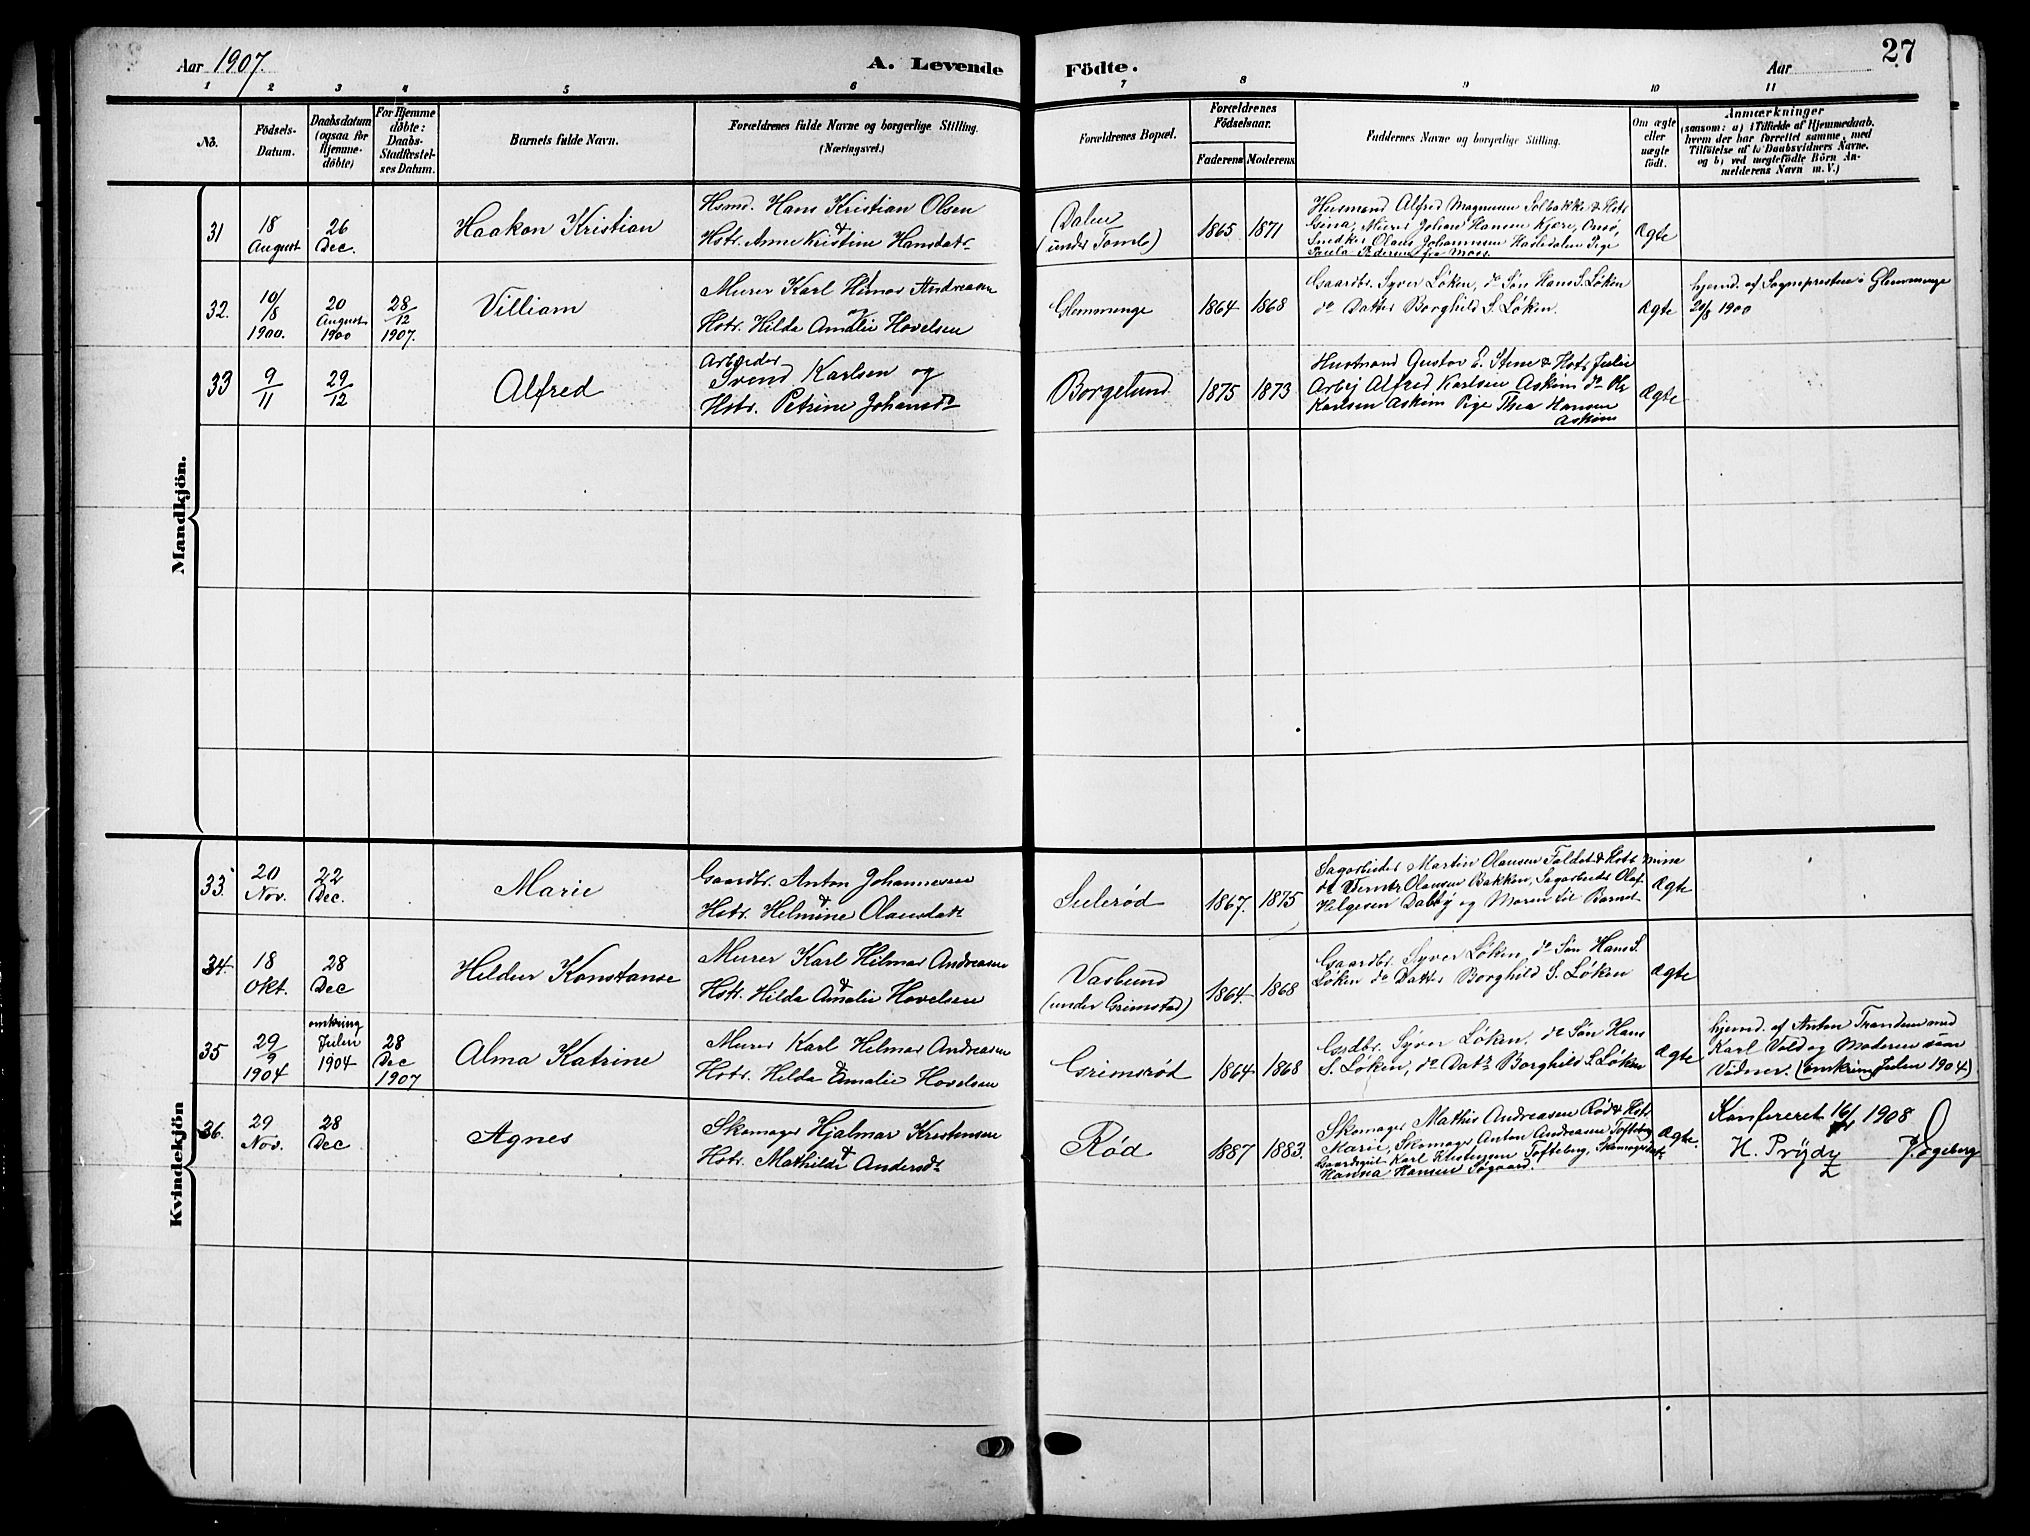 Aar 1907.
A. Levende Födte.
Aar
27
1 2 3 4 5 6 7 8 9 10 11
No.
Födsels-Datum.
Daabsdatum (ogsaa for Hjemme-döbte)
For Hjemme döbte: Daabs-Stadfæstel-ses Datum.
Barnets fulde Navn.
Forældrenes fulde Navne og borgerlige Stilling. (Næringsvei.)
Forældrenes Bopæl.
Forældrenes Födselsaar.
Faderens Moderens
Faddernes Navne og borgerlige Stilling.
Om ægte eller uægte födt.
Anmærkninger
(saasom: a) i Tilfælde af Hjemmedaab.
hvem der har forrettet samme, med
Tilföielse af to Daabsvidners Navne.
og b) ved uægtefödte Börn An-
melderens Navn m. V.)
Mandkjön.
31
18 August
26 Dec.
Haakon Kristian
Hsmd. Hans Kristian Olsen
&
Hstr. Anne Kristine Hansdatr
Dalen
(under Tomb)
1865 1871
Husmand Alfred Magnusen Solbakke & Hstr
Gina, Murer Johan Hansen Kjære, Onsø,
Snedker Olaus Johannesen Hasledalen Pige
Paula Pedersen fra Moss.
Ægte
32.
10/8 1900.
20 August 1900
28/12 1907.
Villiam
Murer Karl Hilmar Andreasen
&
Hstr. Hilda Amalie Hovelsen
Glemminge
1864 1868
Gaardbr. Syver Løken, do Søn Hans S. Løken
do Datter Borghild S. Løken.
Ægte
hjemd. af Sognepresten i Glemminge
20/8 1900
33
9/11
29/12
Alfred
Arbeider
Svend Karlsen og
Hstr. Petrine Johansdtr
Borgelund
1875 1873
Husmand Gustav E. Stene & Hstr Julie
Arbej Alfred Karlsen Askim do
Karlsen Askim Pige Thea Hansen
Askim
Ægte
Kvindekjön
33
20 Nov.
22 Dec.
Marie
Gaardbr. Anton Johannesen
&
Hstr. Helmine Olausdatr
Sulerød
1867. 1875
Sagarbeider Martin Olausen Faldet & Hstr Mina
Olausen Bakken, Sagarbeider Olaf
Helgesen Dalby og Moren til Barnet
Ægte
34.
18 Okt.
28 Dec
Hildur Konstanse
Murer Karl Hilmar Andreasen
&
Hstr. Hilda Amalie Hovelsen
Vaslund
(under Grimstad)
1864. 1868
Gaardbr. Syver Løken, do Søn Hans S.
Løken do Datter Borghild S. Løken
Ægte
35
29/9 1904
omkring Julen 1904
28 Dec 1907
Alma Katrine
Murer Karl Hilmar Andreasen
&
Hstr. Hilda Amalie Hovelsen
Grimsrød
1864 1868
Grdbr. Syver Løken, do Søn Hans
S. Løken, do Datr Borghild S. Løken
Ægte
hjemd. af Anton Trandem med
Karl Vold og Moderen som
Vidner. (omkring Julen 1904)
36.
29 Nov.
28 Dec
Agnes
Skomager Hjalmar Kristensen
&
Hstr. Mathilde Andersdtr
Rød
1887 1883.
Skomager Mathis Andreasen Rød & Hstr.
Marie, Skomager Anton Andreasen Tofteberg
Gaardsgut Karl Kristensen Tofteberg, Skomagerdatr
Hanna Hansen Søgaard.
Ægte.
Konfereret 16/1 1908
H. Prÿdz